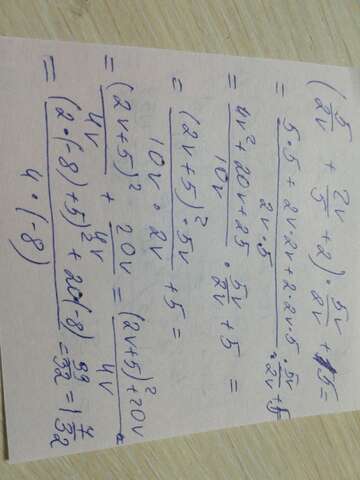 (5/2v + 2v/5 + 2) · 5v/2v + 5 =
= (5·5 + 2v·2v + 2·2v·5)/(2v·5) · 5v/2v + 5
= (4v² + 20v + 25)/10v · 5v/2v + 5 =
= ((2v+5)² · 5v)/(10v · 2v) + 5 =
= (2v+5)²/4v + 20v/4v = ((2v+5)² + 20v)/4v
= ((2·(-8)+5)² + 20·(-8))/(4·(-8)) = 39/32 = 1 7/32